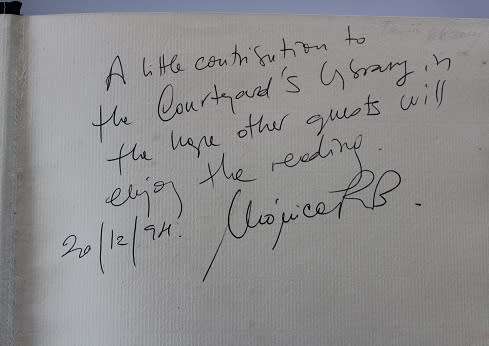 A little contribution to
the Courtyard's library in
the hope other guests will
enjoy the reading.
20/12/94. Mónica RB.